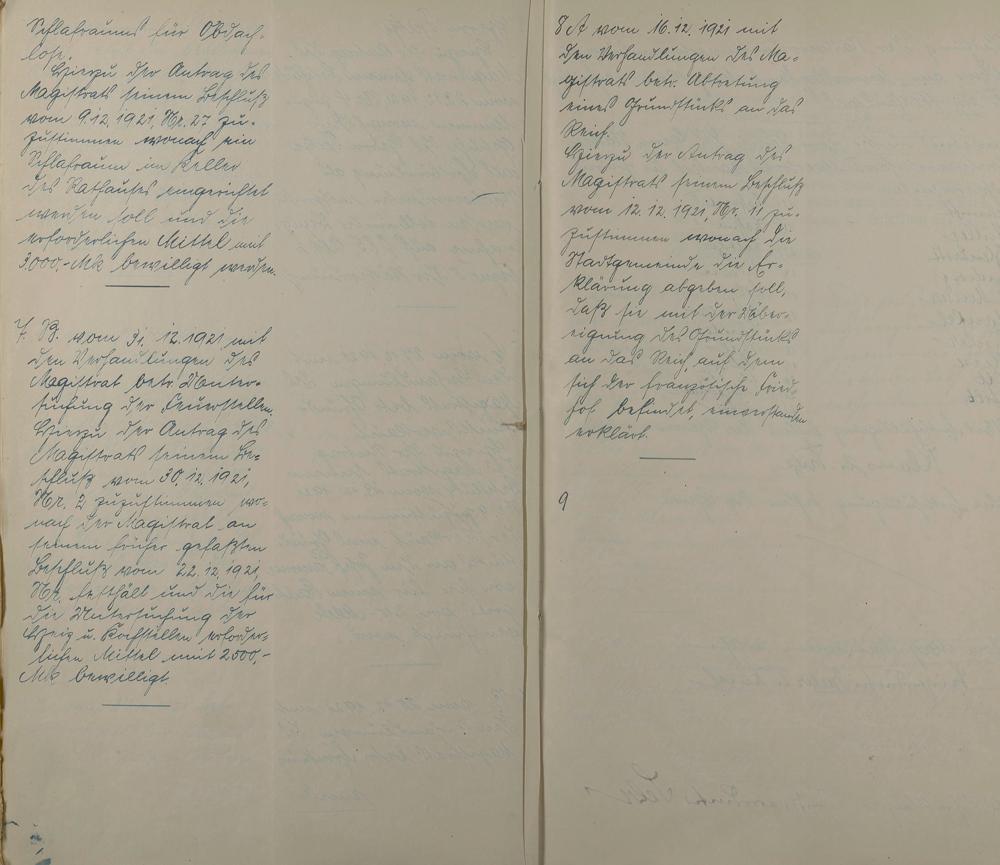 Schlafraums für Obdach-
lose.
Hierzu der Antrag des
Magistrats seinem Beschluß
vom 9.12.1921, Nr. 27 zu-
zustimmen wonach ein
Schlafraum im Keller
des Rathauses eingerichtet
werden soll und die
erforderlichen Mittel mit
3000,-Mk bewilligt werden.
7. B. vom 31.12.1921 mit
den Verhandlungen des
Magistrat betr. Unter-
suchung der Feuerstellen.
Hierzu der Antrag des
Magistrats seinem Be-
schluß vom 30.12.1921,
Nr. 2 zuzustimmen wo-
nach der Magistrat an
seinem früher gefaßten
Beschluß vom 22.12.1921,
Nr. festhält und die für
die Untersuchung der
Heiz u. Kochstellen erforder-
lichen Mittel mit 2000,-
Mk bewilligt.
8 A vom 16.12.1921 mit
den Verhandlungen des Ma-
gistrats betr. Abtretung
eines Grundstücks an das
Reich.
Hierzu der Antrag des
Magistrats seinem Beschluß
vom 12.12.1921, Nr. 11 zu-
zustimmen wonach die
Stadtgemeinde die Er-
klärung abgeben soll,
daß sie mit der Über-
eignung des Grundstücks
an das Reich, auf dem
sich der französische Fried-
hof befindet, einverstanden
erklärt.
9